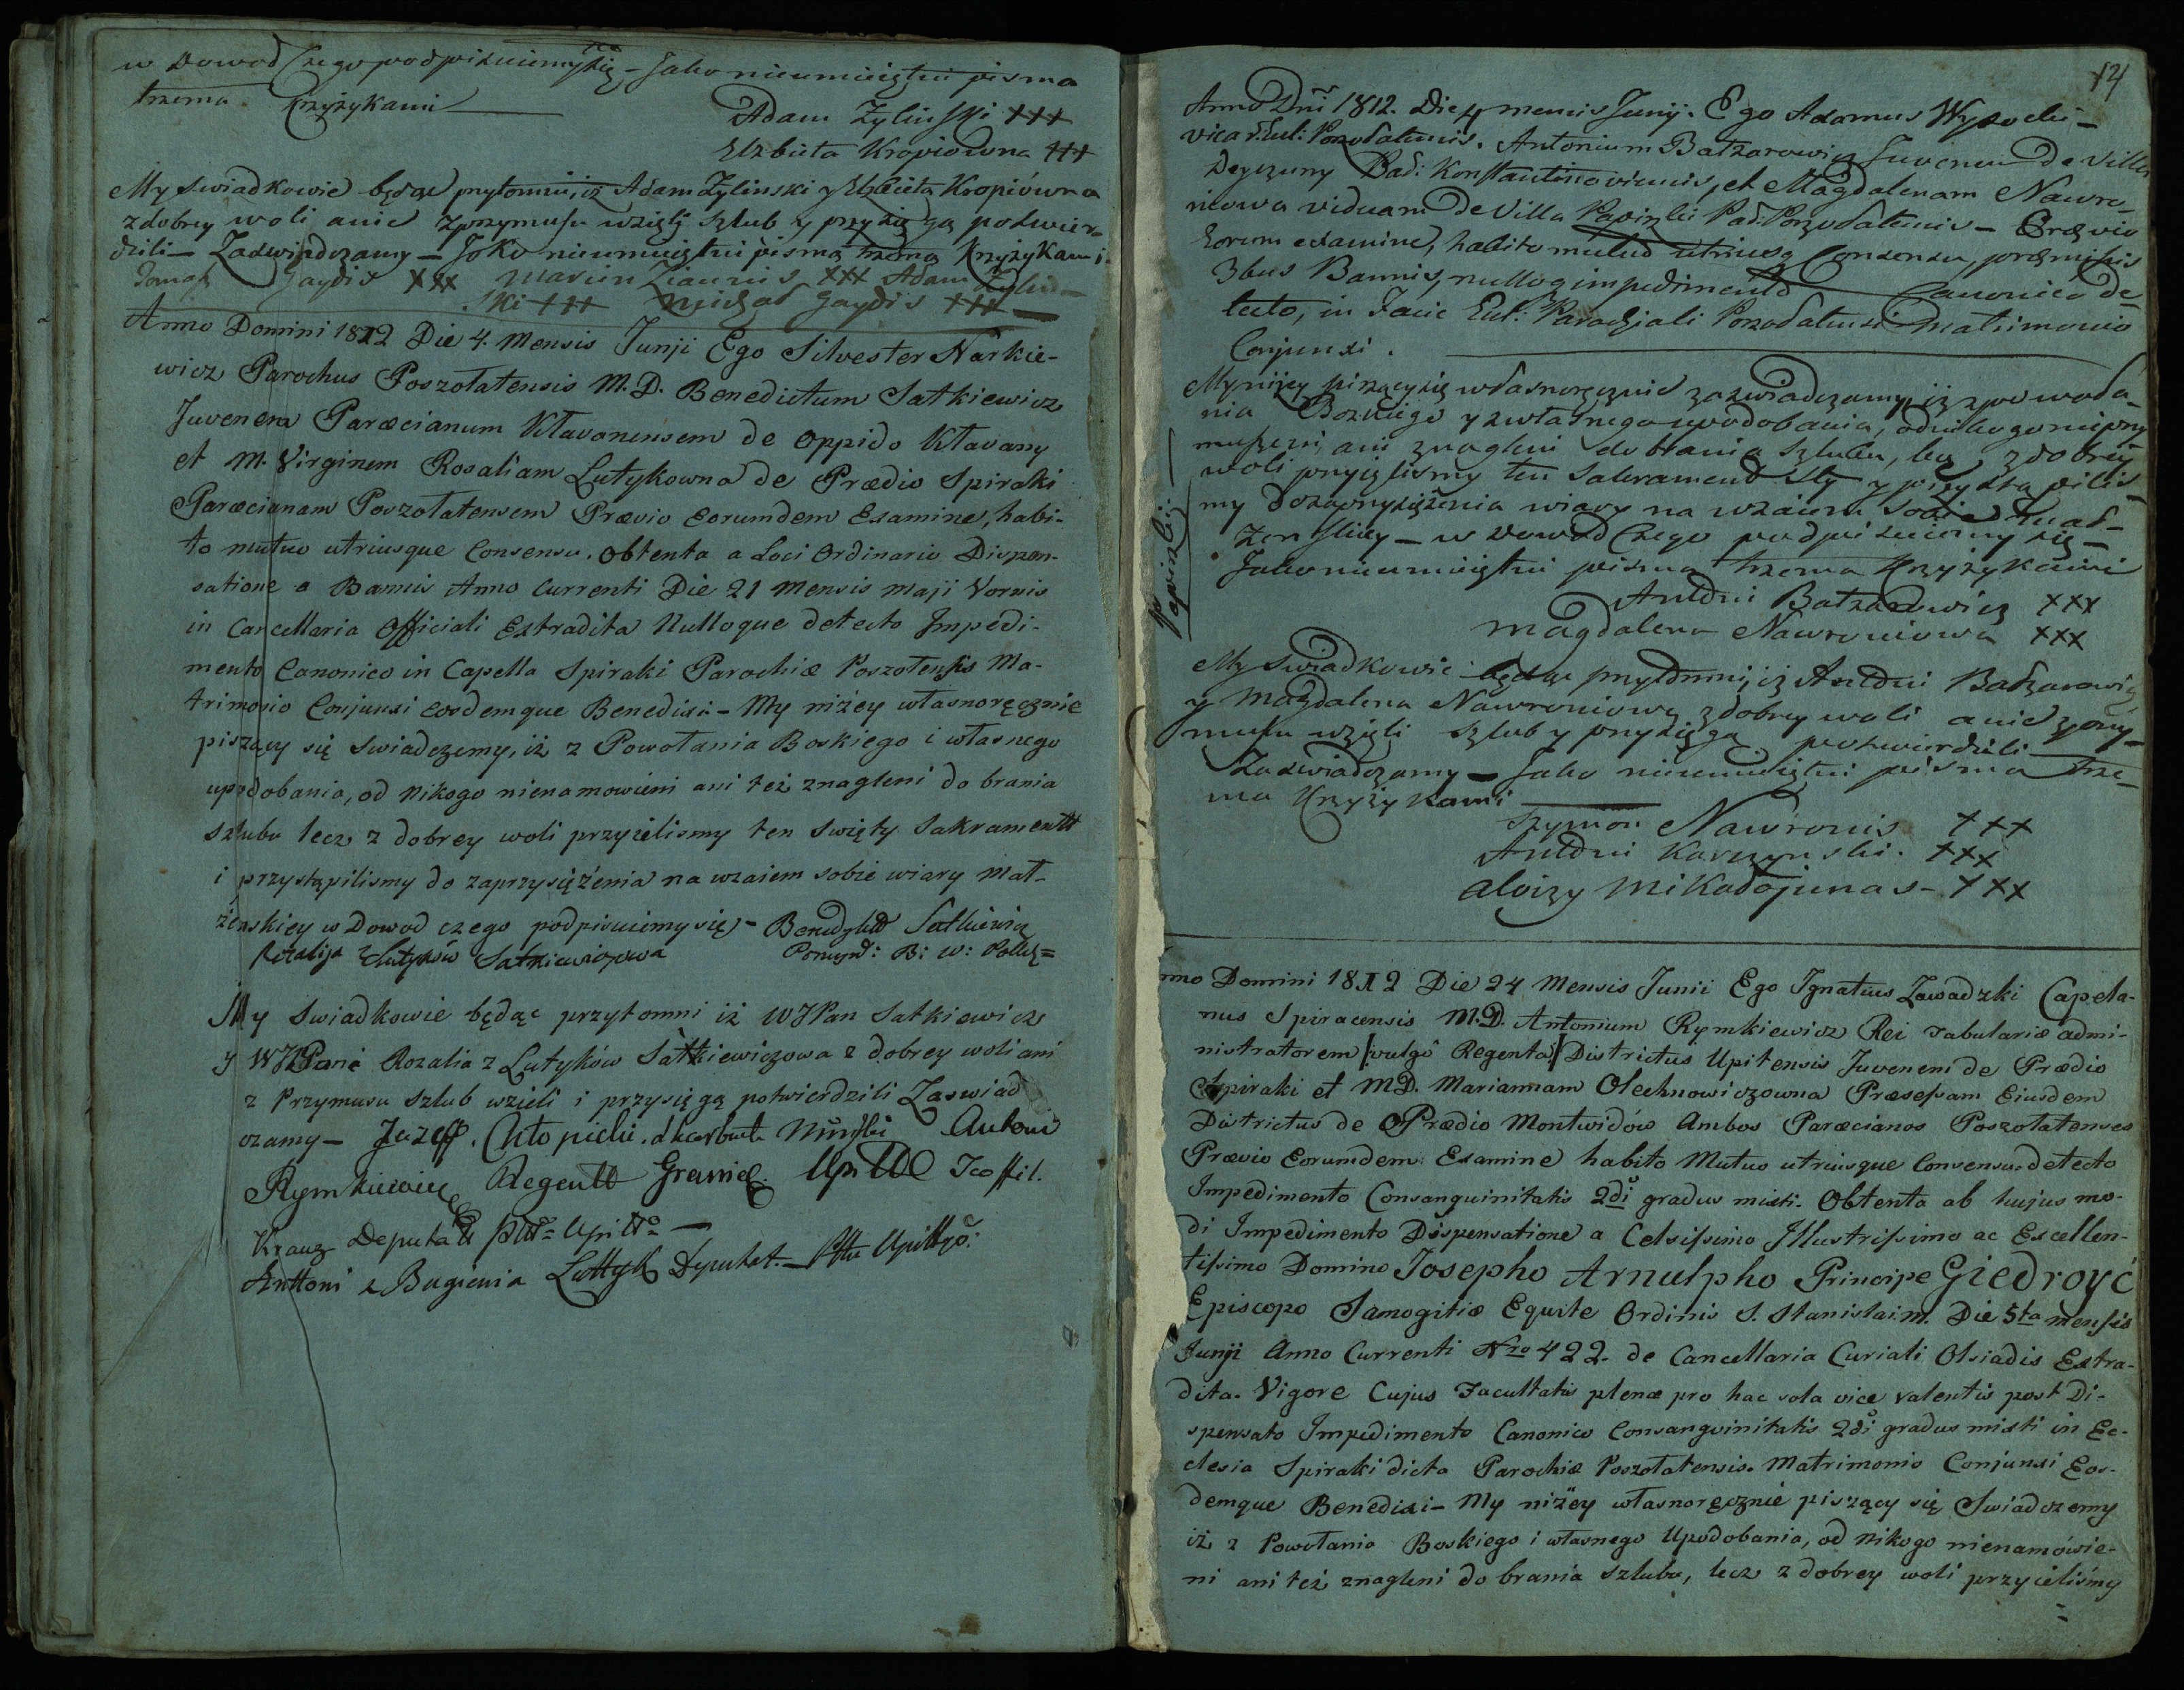 w Dowod Czego podpisuiemy się – Jako nieumieiętni pisma
trzema Krzyżykami
Adam Zylinski +++
Elzbieta Kropiowna +++
My swiadkowie będąc przytomni, iż Adam Zylinski y Elzbieta Kropiówna
z dobrey woli a nie z przymusu wzięli szlub y przysięgą potwier-
dzili – Zaswiadczamy – Jako nieumieiętni pisma trzema Krzyżykami
Jgnacy Gaydis +++ Marcin Ziaunis +++ Adam Zylin-
ski +++ Michał Gaydis +++
Anno Domini 1812 Die 4. Mensis Junji Ego Silvester Narkie-
wicz Parochus Poszołatensis M.D. Benedictum Satkiewicz
Juvenem Parœcianum Kławanensem de Oppido Kławany
et M. Virginem Rosaliam Lutykowna de Prædio Spiraki
Parœcianam Poszołatensem Prævio Eorumdem Examine, habi-
to mutuo utriusque Consensu. Obtenta a Loci Ordinario Dispen-
satione a Bannis Anno Currenti Die 21 Mensis Maji Vornis
in Cancellaria Officiali Extradita Nulloque detecto Impedi-
mento Canonico in Capella Spiraki Parochiæ Poszołensis Ma-
trimonio Conjunxi eosdemque Benedixi – My niżey własnoręcznie
piszący się Swiadczemy, iż z Powołania Boskiego i własnego
upodobania, od Nikogo nienamowieni ani też znagleni do brania
szlubu lecz z dobrey woli przyielismy ten Swięty Sakramentt
i przystąpilismy do zaprzysiężenia na wzaiem sobie wiary Mał-
żeńskiey w Dowod czego podpisuiemy się – Benedyktt Satkiewicz
Rozalija z Lutyków Satkiewiczowa Porucznik: B: W: Polls=
My Swiadkowie będąc przytomni iż WJPan Satkiewicz
y WJPani Rozalia z Lutyków Satkiewiczowa z dobrey woli ani
z Przymusu szlub wzieli i przysięgą potwierdzili Zaswiad
czamy – Jozeff. Chłopicki. Antoni
Rymkiewicz Regentt Granicz. Upittl Teoffil.
Krauz Deputatt Pttu Upitt –
Anttoni z Bugienia Luttyk Deputat. – Pttu Upittgo.
14
Anno Dni 1812. Die 4 mensis Junij. Ego Adamus Wysocki –
vica: Eccl: Poszołatensis. Antonium Bałzarowicz Juvenem de Villa
Degczuny Par: Konstantinoviensis, et Magdalenam Nawro-
niowa viduam de Villa Papiszki Par: Poszołatensis – Prævio
Eorum examine, habito mutuo utriusq Consensu, præmissis
3bus Bannis, nulloq impedimento Canonico de-
tecto, in Facie Eccl: Parochiali Poszołatensi Matrimonio
Conjunxi.
Papiszki.
My niżey piszący się własnoręcznie zaswiadczamy, iż z powoła-
nia Bozkiego y z własnego upodobania, od nikogo nieprzy-
muszeni, ani znagleni do brania szlubu, lecz z dobrey
woli przyięlismy ten Sakrament Sty y przystąpilis-
my do zaprzysiężenia wiary na wzaiem sobie mał-
żenskiey – w dowod Czego podpisuiemy się –
Jako nieumieiętni pisma trzema Krzyżykami
Antoni Bałzarowicz +++
Magdalena Nawroniowa +++
My swiadkowie będąc przytomni, iż Antoni Bałzarowicz
y Magdalena Nawroniowa z dobrey woli a nie z przy-
musu wzięli szlub y przysięgą potwierdzili
Zaswiadczamy – Jako nieumieiętni pisma trze-
ma Krzyżykami
Szymon Nawronis +++
Antoni Karczynski. +++
Aloizy Mikołojunas – +++
nno Domini 1812 Die 24 Mensis Junii Ego Ignatius Zawadzki Capela-
nus Spiracensis M.D. Antonium Rymkiewicz Rei Tabulariæ admi-
nistratorem /:vulgô Regenta:/ Districtus Upitensis Juvenem de Prædio
Spiraki et M.D. Mariannam Olechnowiczowna Præsefsam Eiusdem
Districtus de Prædio Montwidów Ambos Parœcianos Poszołatenses
Prævio Eorumdem Examine habito Mutuo utriusque Consensu detecto
Impedimento Consanguinitatis 2di gradus mixti. Obtenta ab hujus mo-
di Impedimento Dispensatione a Celsifsimo Jllustrifsimo ac Excellen-
tifsimo Domino Josepho Arnulpho Principe Giedroyć
Episcopo Samogitiæ Equite Ordinis S. Stanislai. M. Die 5ta mensis
Junji Anno Currenti Nro 422. de Cancellaria Curiali Olsiadis Extra-
dita. Vigore Cujus Facultatis plenæ pro hac sola vice valentis post Di-
spensato Impedimento Canonico Consangvinitatis 2di gradus mixti in Ec-
clesia Spiraki dicta Parochiæ Poszołatensis. Matrimonio Conjunxi Eos-
demque Benedixi – My niżey własnoręcznie piszący się Swiadczemy
iż z Powołania Boskiego i własnego Upodobania, od Nikogo nienamówie-
ni ani też znagleni do brania szlubu, lecz z dobrey woli przyieliśmy